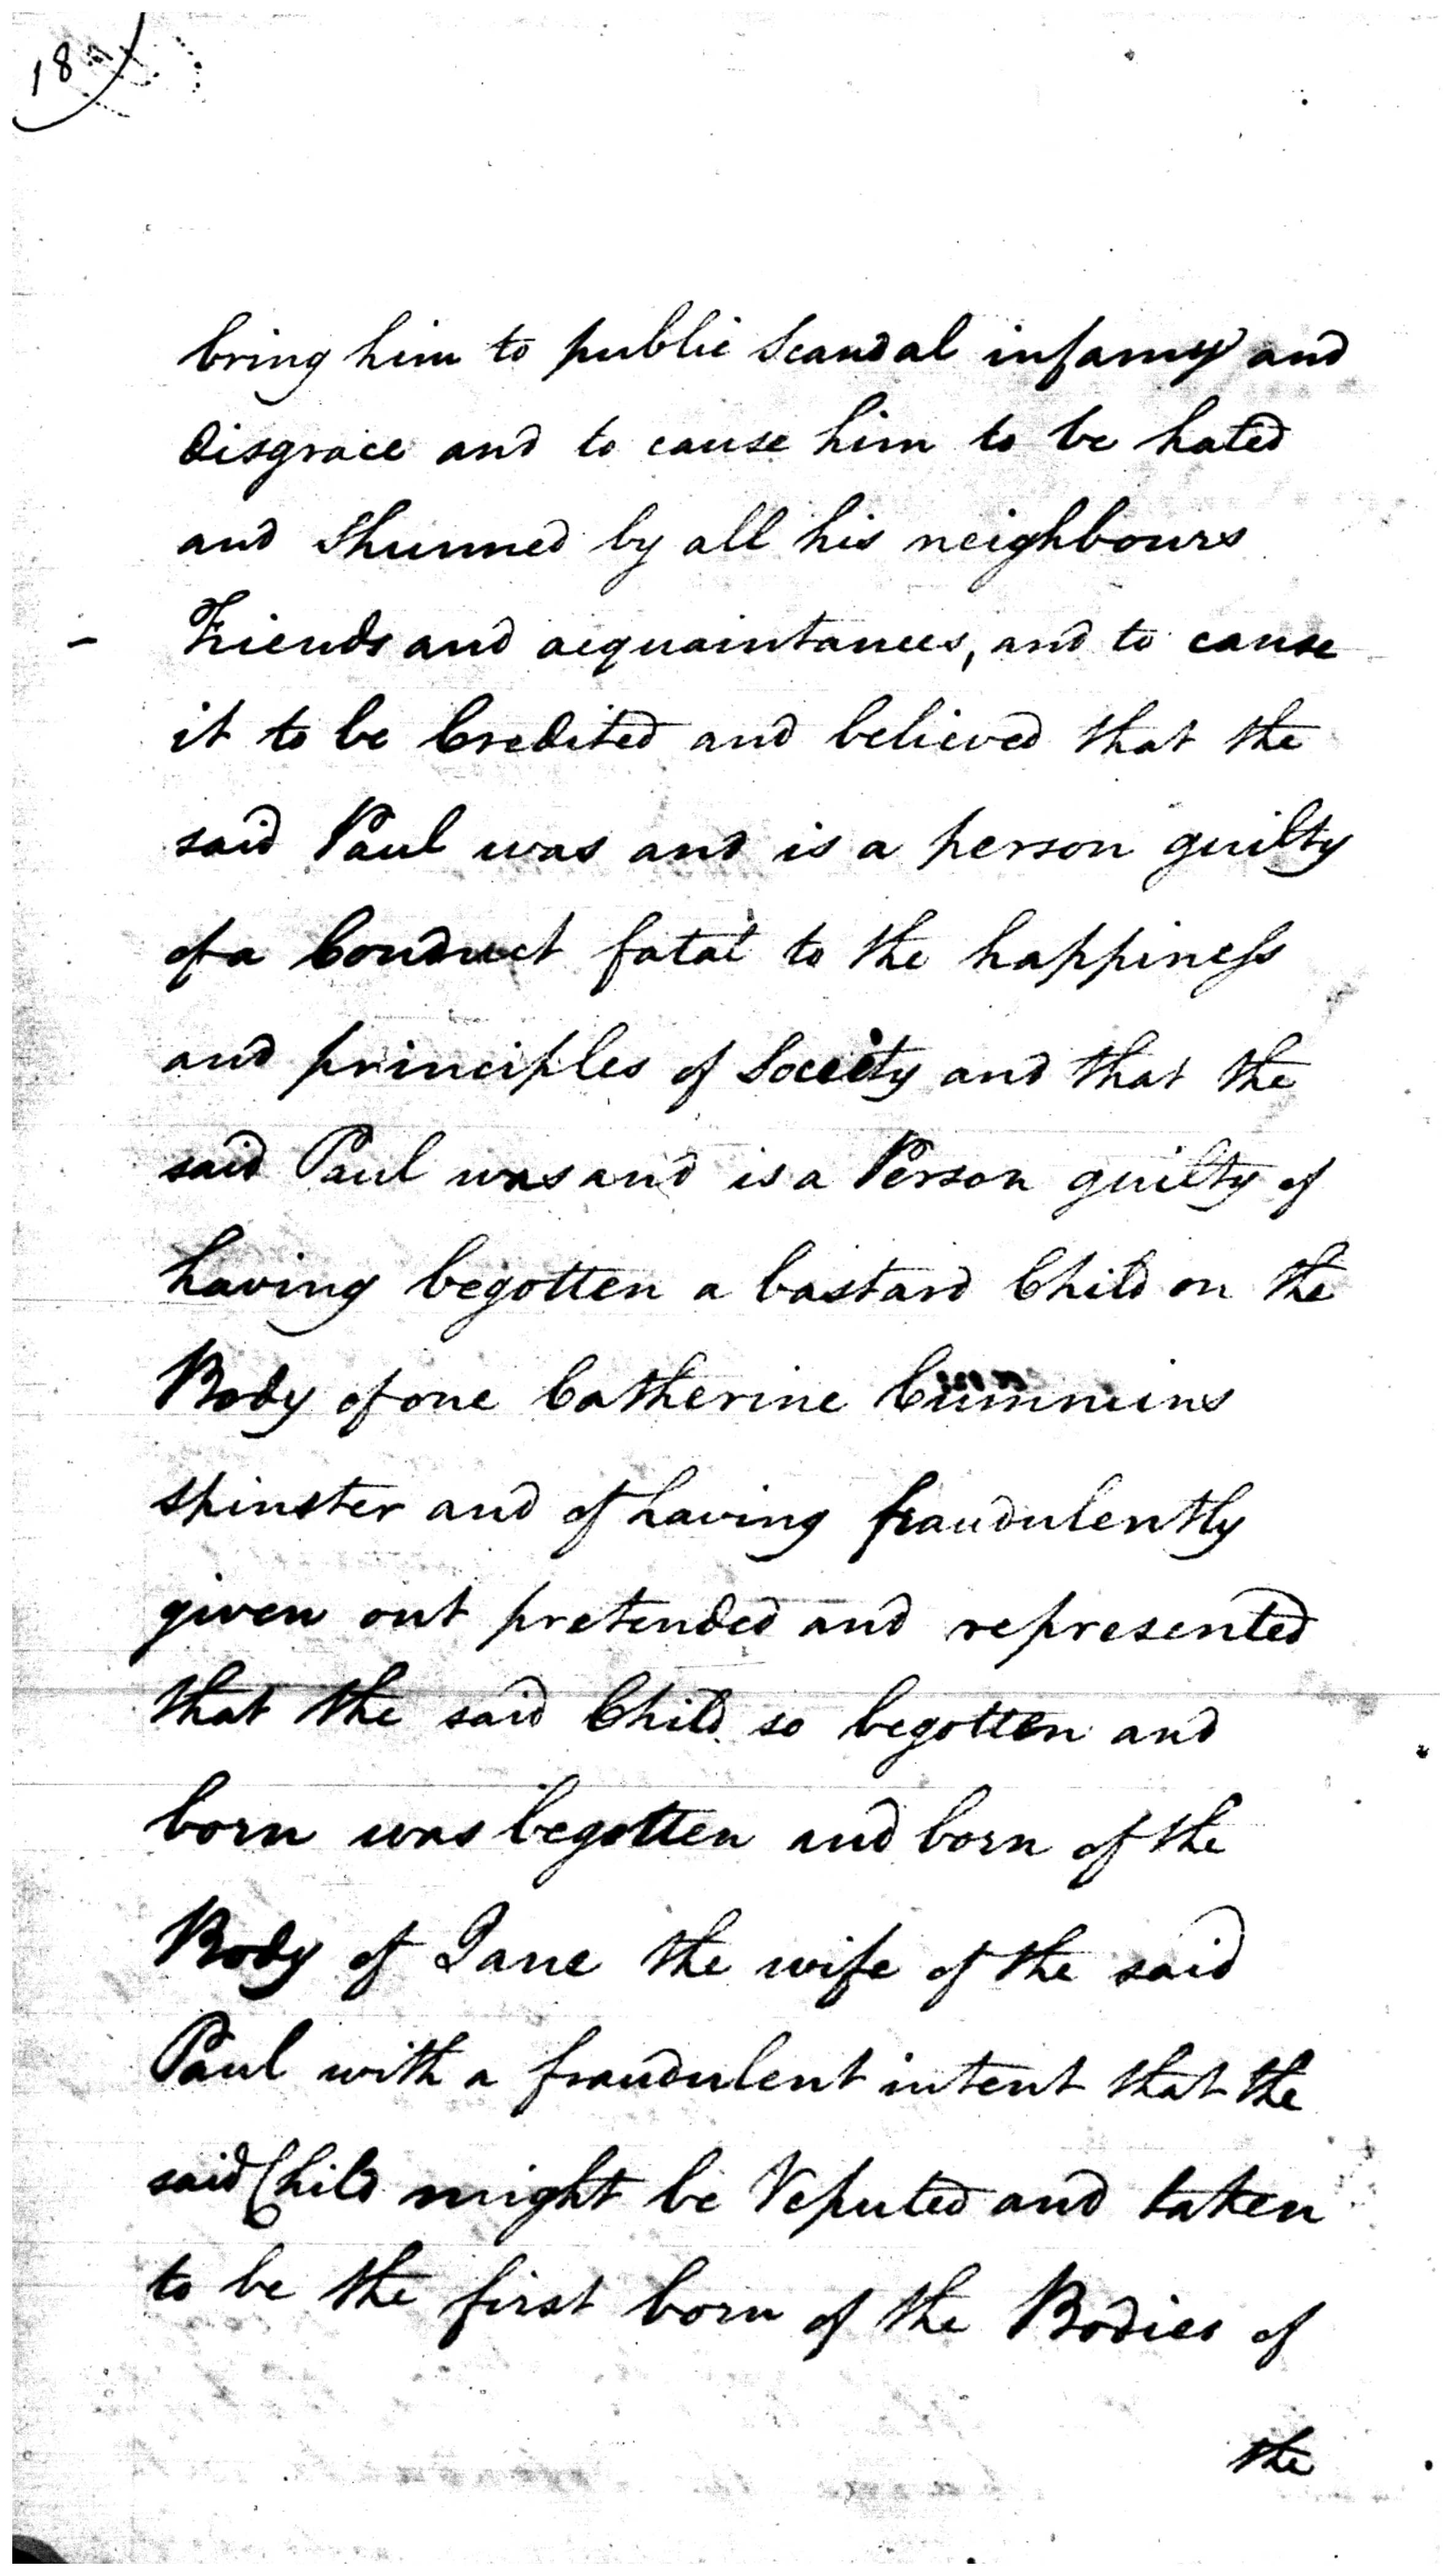 bring him to public Scandal infamy and
disgrace and to cause him to be hated
and Shunned by all his neighbours
- Friends and acquaintances, and to cause
it to be Credited and believed that the
said Paul was and is a person guilty
of a Conduct fatal to the happiness
and principles of Society and that the
said Paul was and is a Person guilty of
having begotten a bastard Child on the
Body of one Catherine Cummins
spinster and of having fraudulently
given out pretended and represented
that the said Child so begotten and
born was begotten and born of the
Body of Jane the wife of the said
Paul with a fraudulent intent that the
said Child might be Reputed and taken
to be the first born of the Bodies of
the